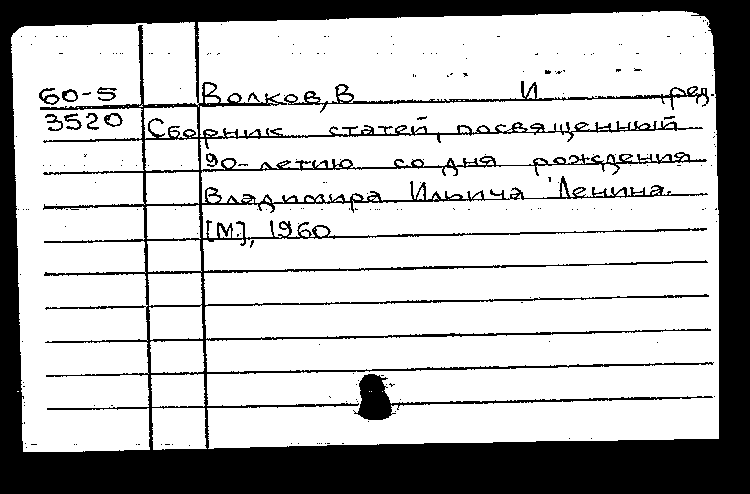 60-5 Волков, В И ред.
3520 Сборник статей, посвященный
90-летию со дня рождения
Владимира Ильича Ленина.
[М], 1960